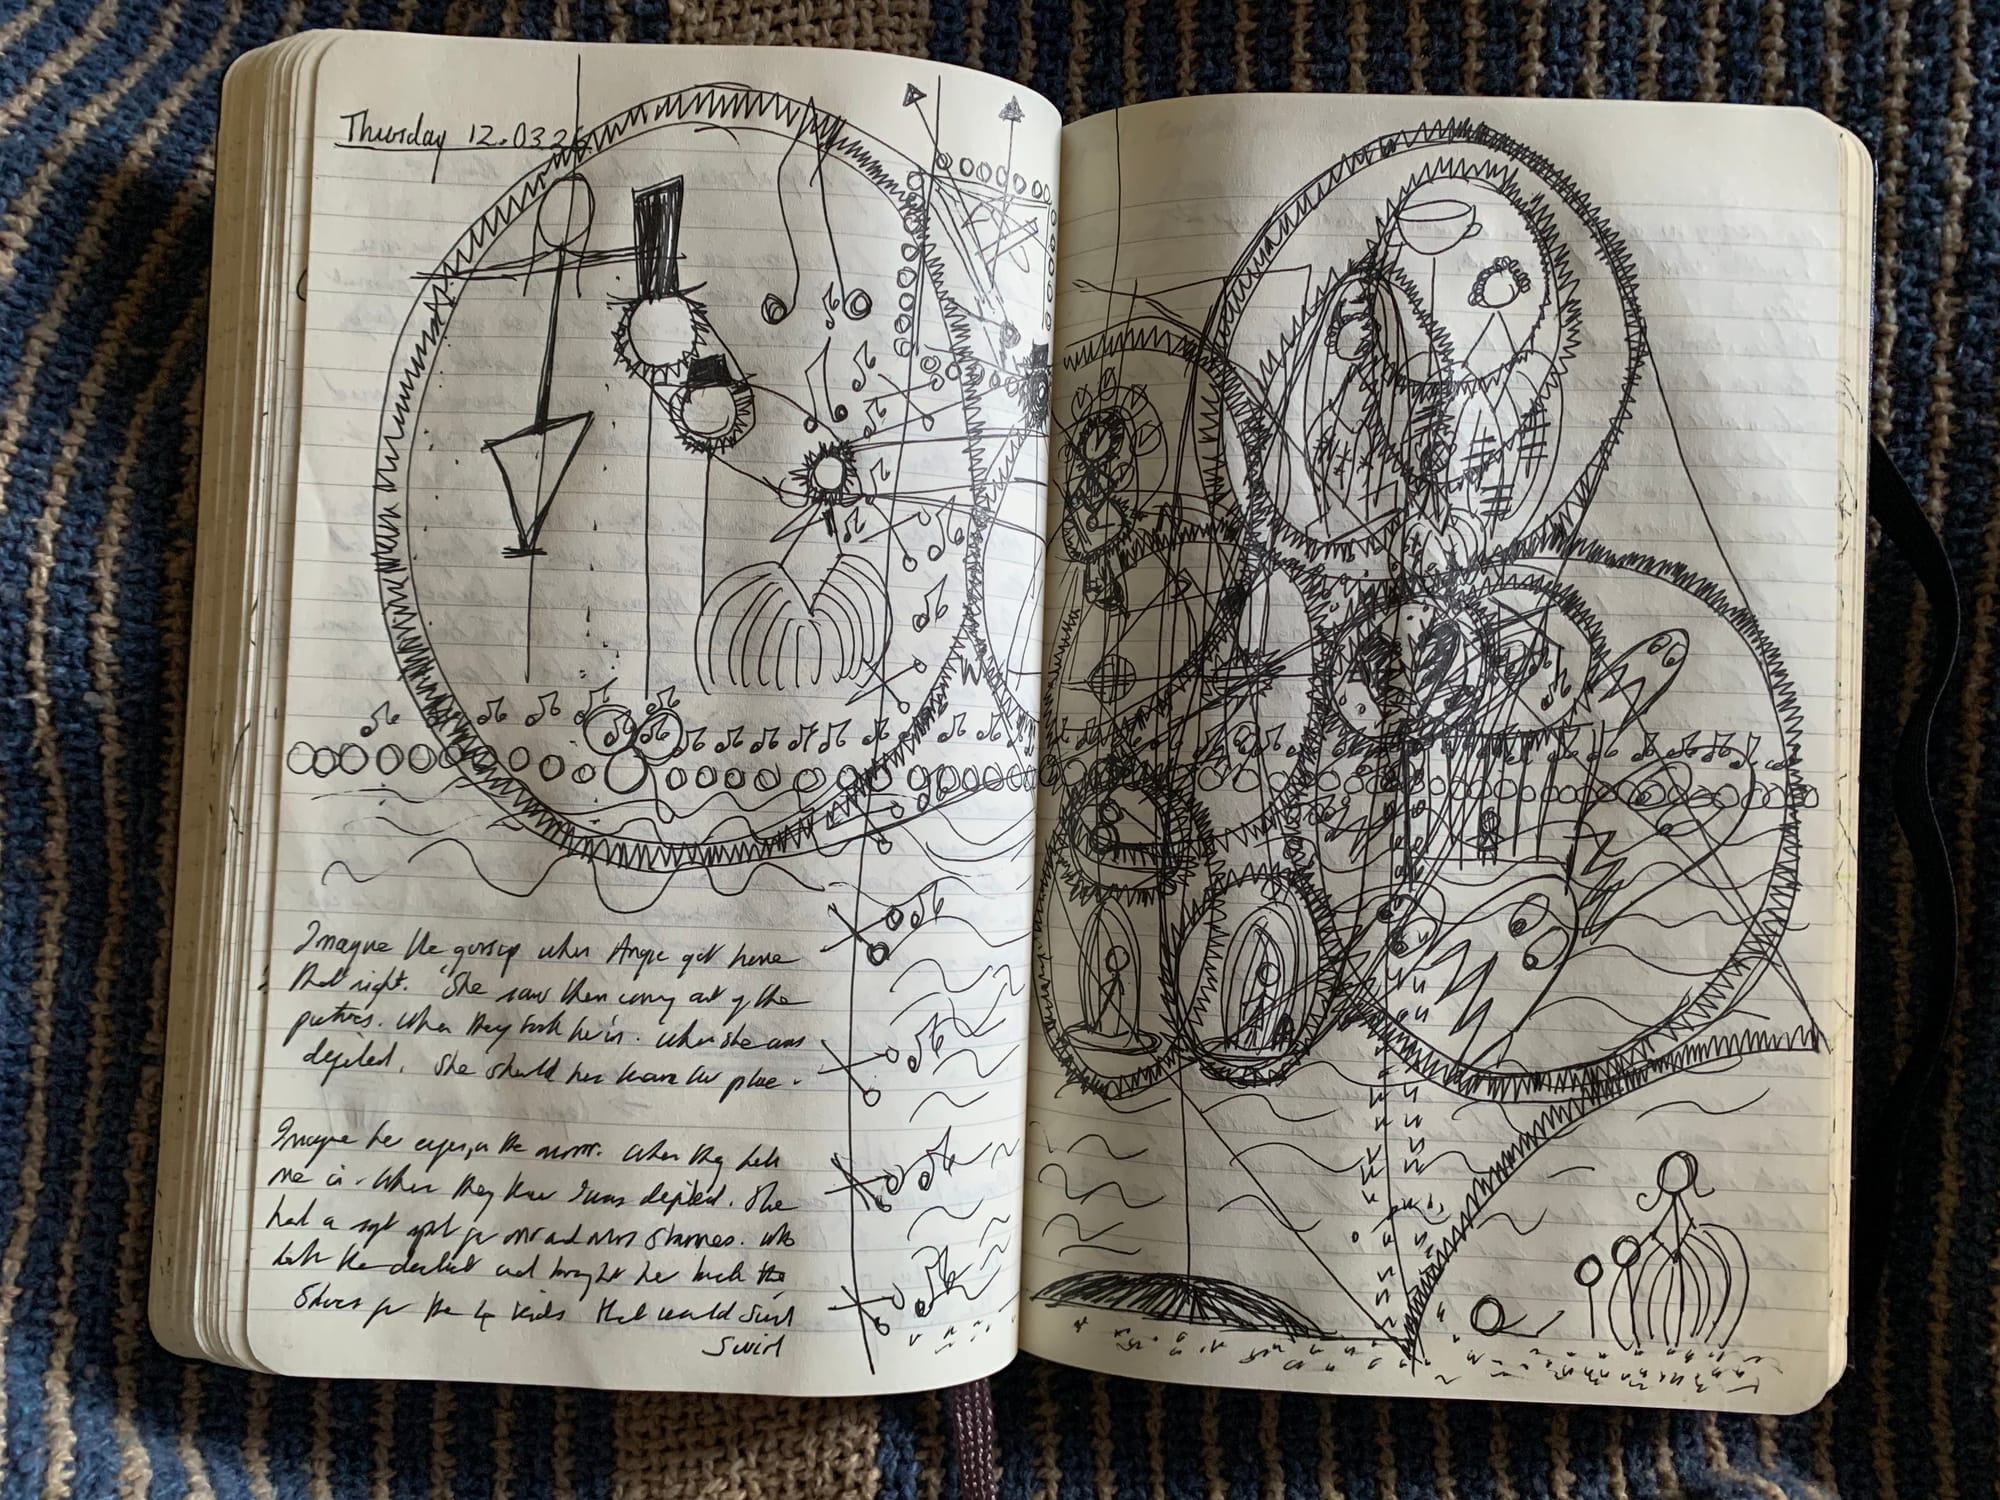 Thursday 12.03.26
Imagine the gossip when Angie got home
that night. "She saw them coming out of the
pictures. When they took her in. When she was
depiled. She should her know her place.
Imagine her eyes, in the mirror. When they held
me in. When they knew I was depiled. She
had a spot for Mr and Mrs Shannes. Who
the and brought her back the
Shoes for the 4 kids that would Swirl
Swirl